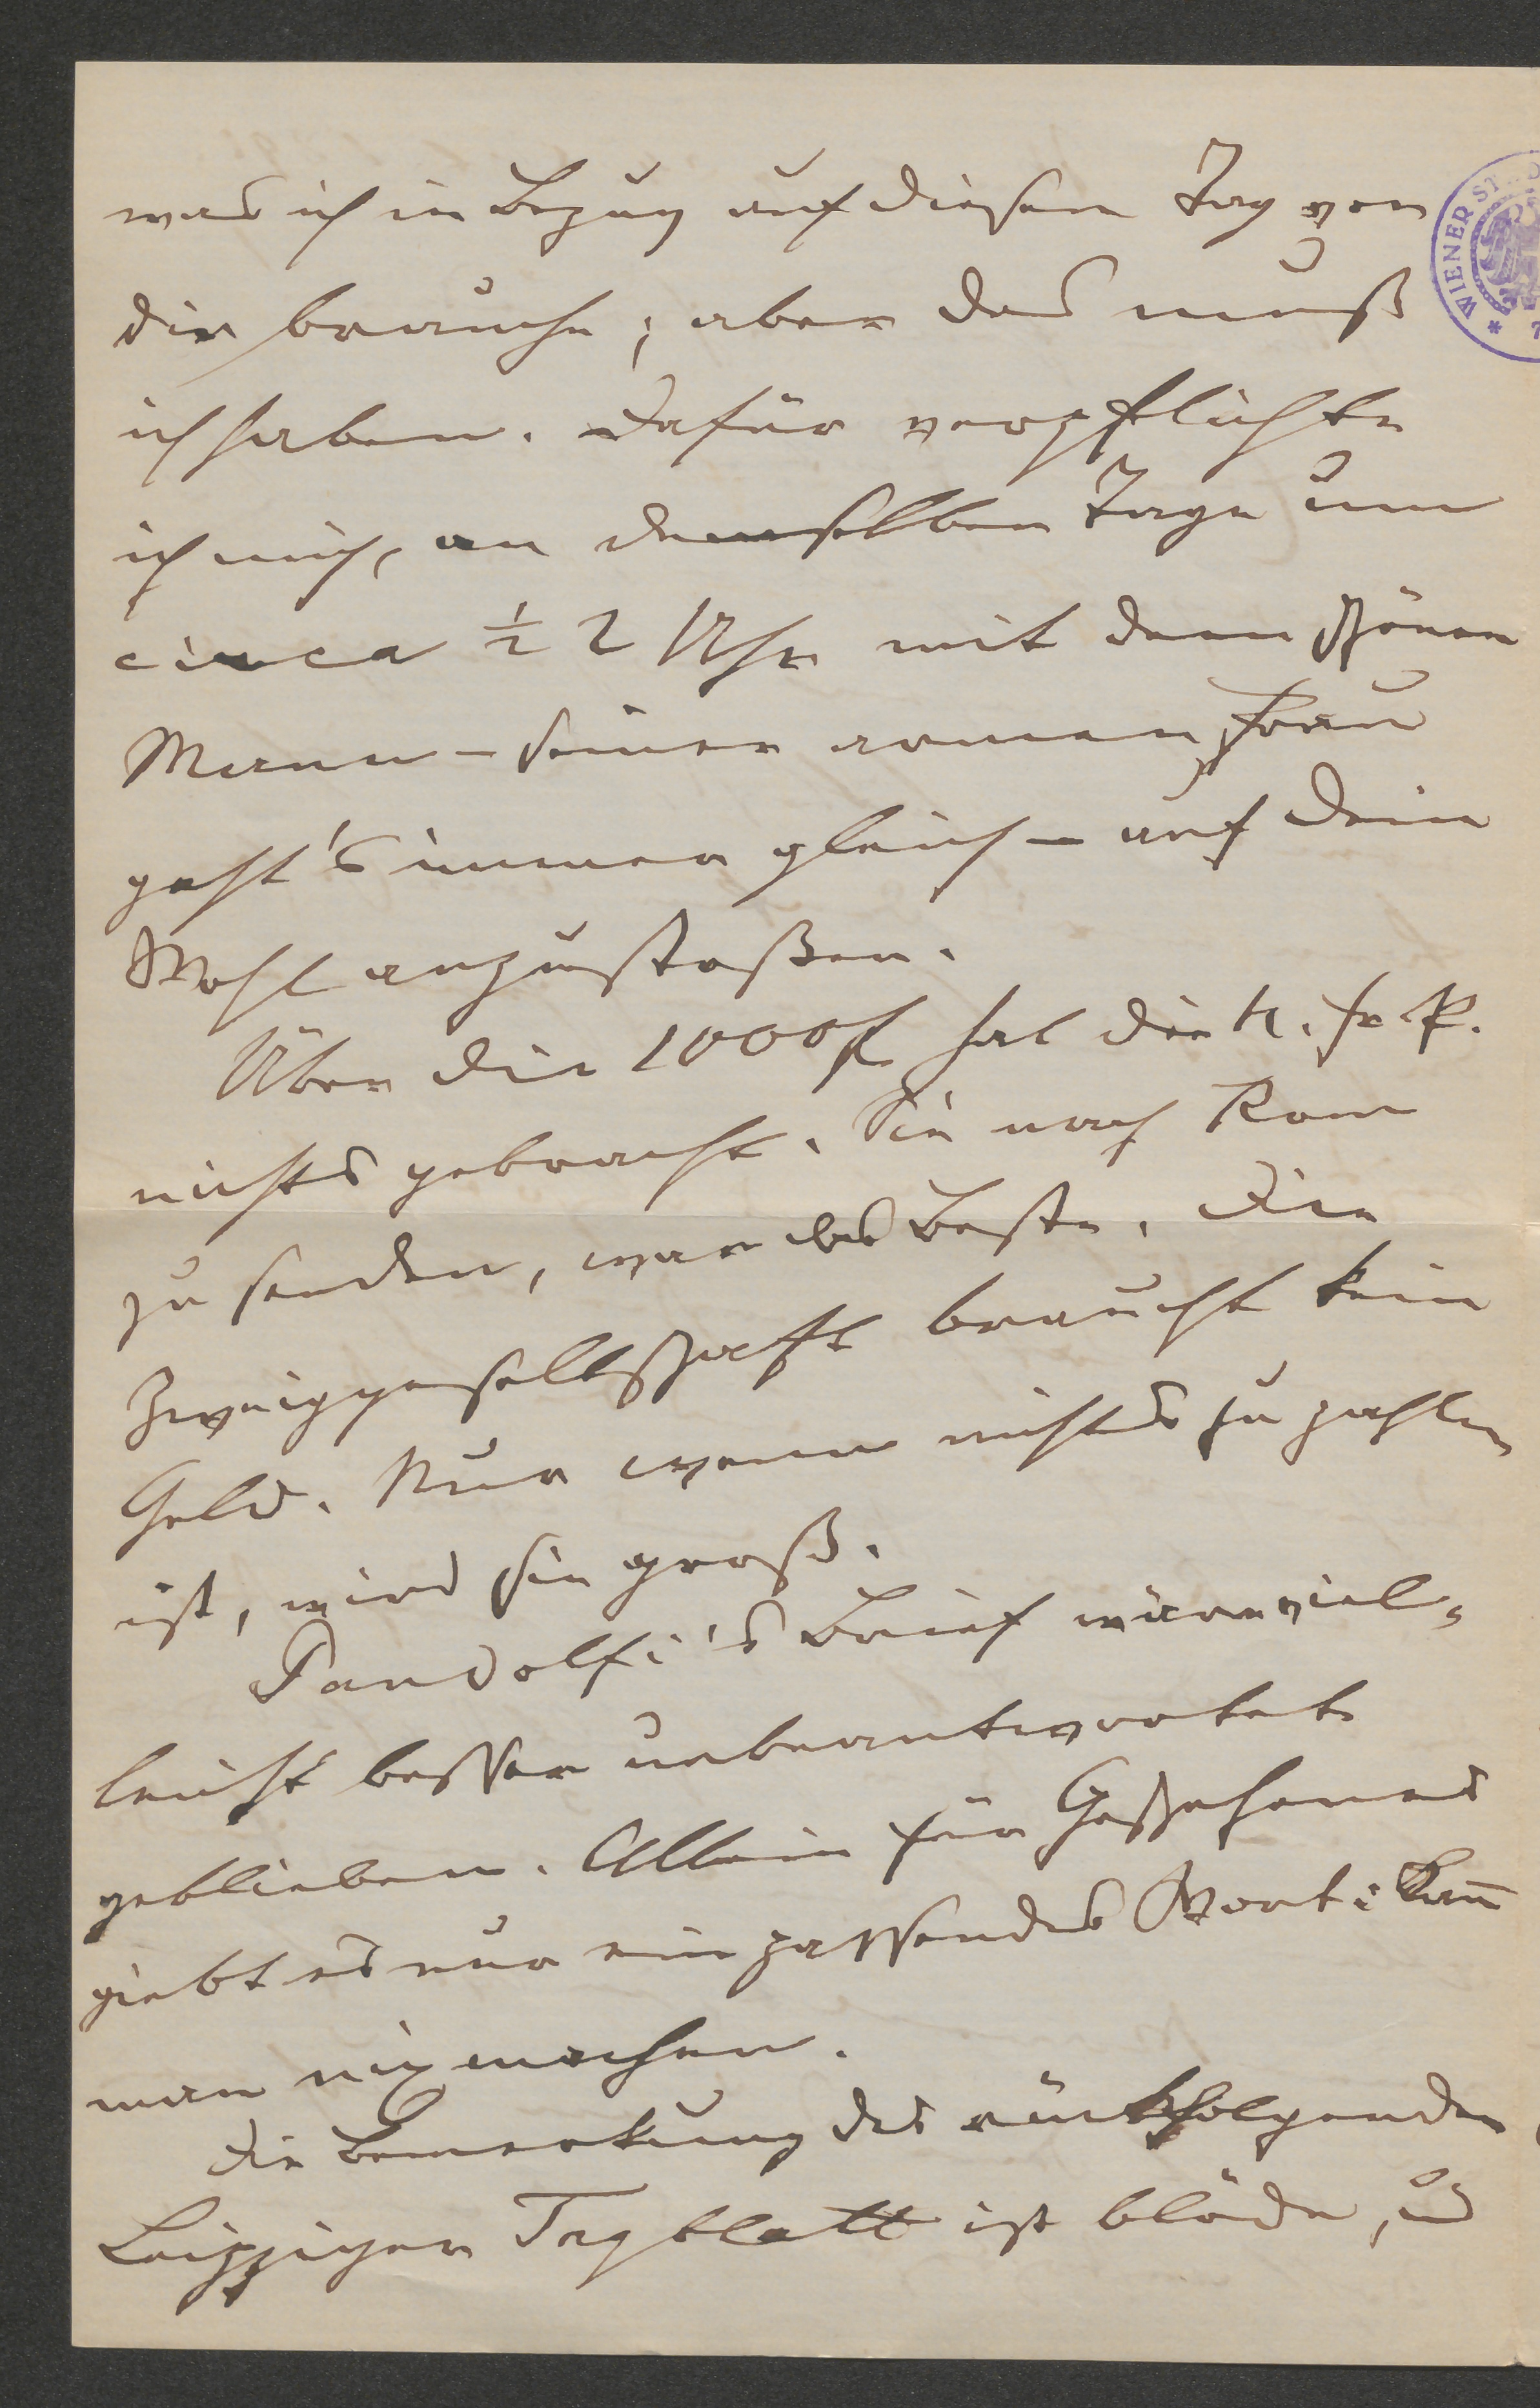 was ich in Bezug auf diesen Tag von
dir brauche; aber das muß
ich haben. Dafür verpflichte
ich mich, an demselben Tage um
circa ½ 2 Uhr mit dem schönen
Mann – seiner armen Frau
geht's immer gleich – auf dein
Wohl anzustoßen.
Über die 1000 f hat die N. fr. P.
nichts gebracht. Sie nach Rom
zu senden, war das Beste. Die
Zweiggesellschaft braucht kein
Geld. Nur wenn nichts zu zahlen
ist, wird sie groß.
Pandolfi's Brief wäre viel-
leicht besser unbeantwortet
geblieben. Allein für Geschehenes
giebt es nur ein passendes Wort: Kañ
man nix machen.
Die Bemerkung des rückfolgenden
Leipziger Tagblatt ist blöde, u
WIENER ST